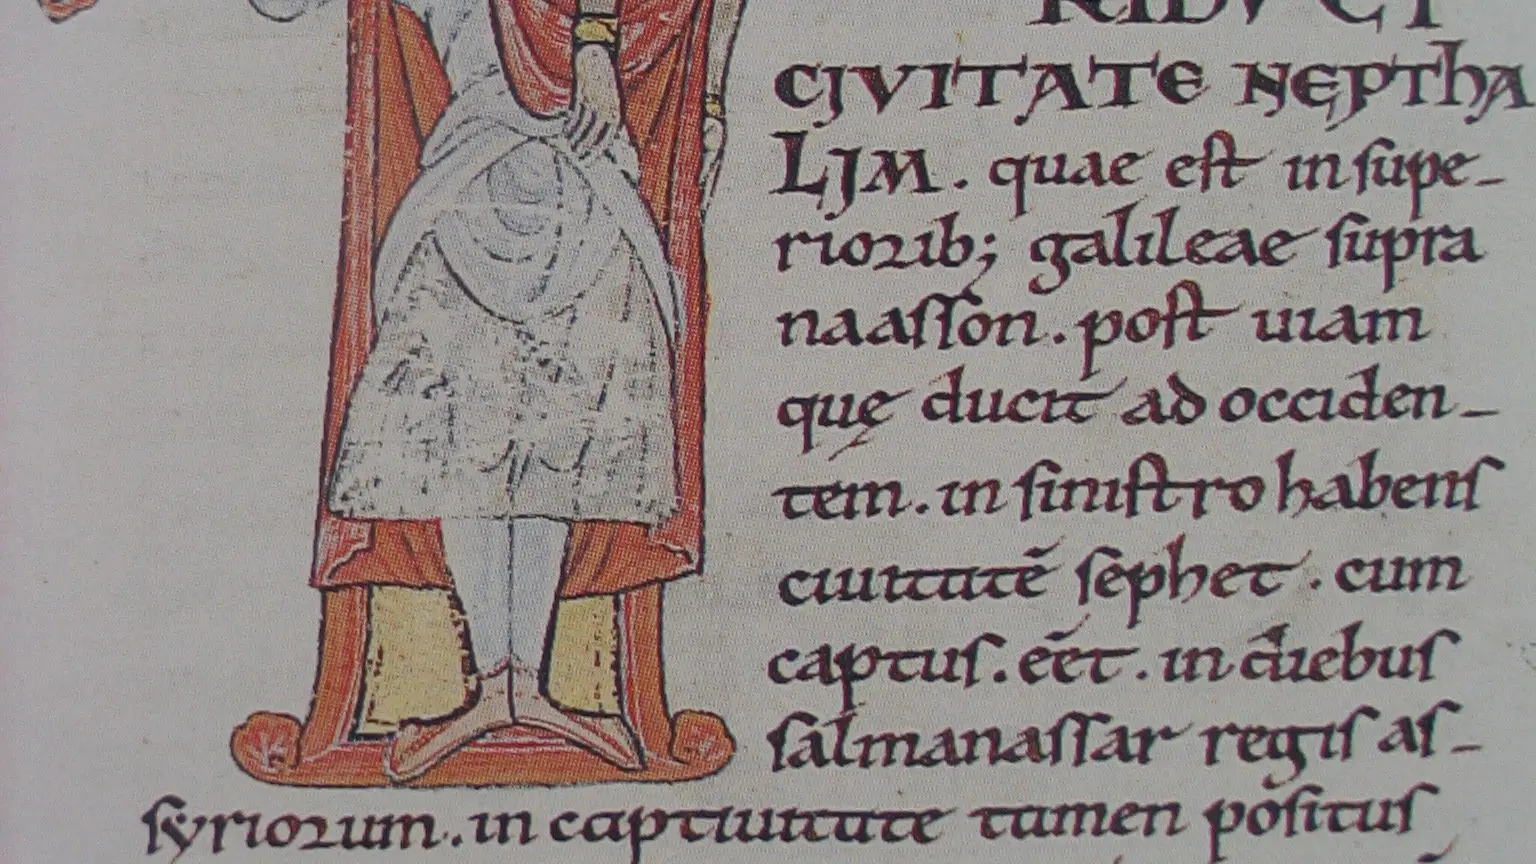 CIVITATE NEPTHA
LIM. quae est in supe-
riorib; galileae supra
naasson. post uiam
quę ducit ad occiden-
tem. in sinistro habens
ciuitatē sephet. cum
captus. eēt. in diebus
salmanassar regis as-
syriorum. in captiuitate tamen positus